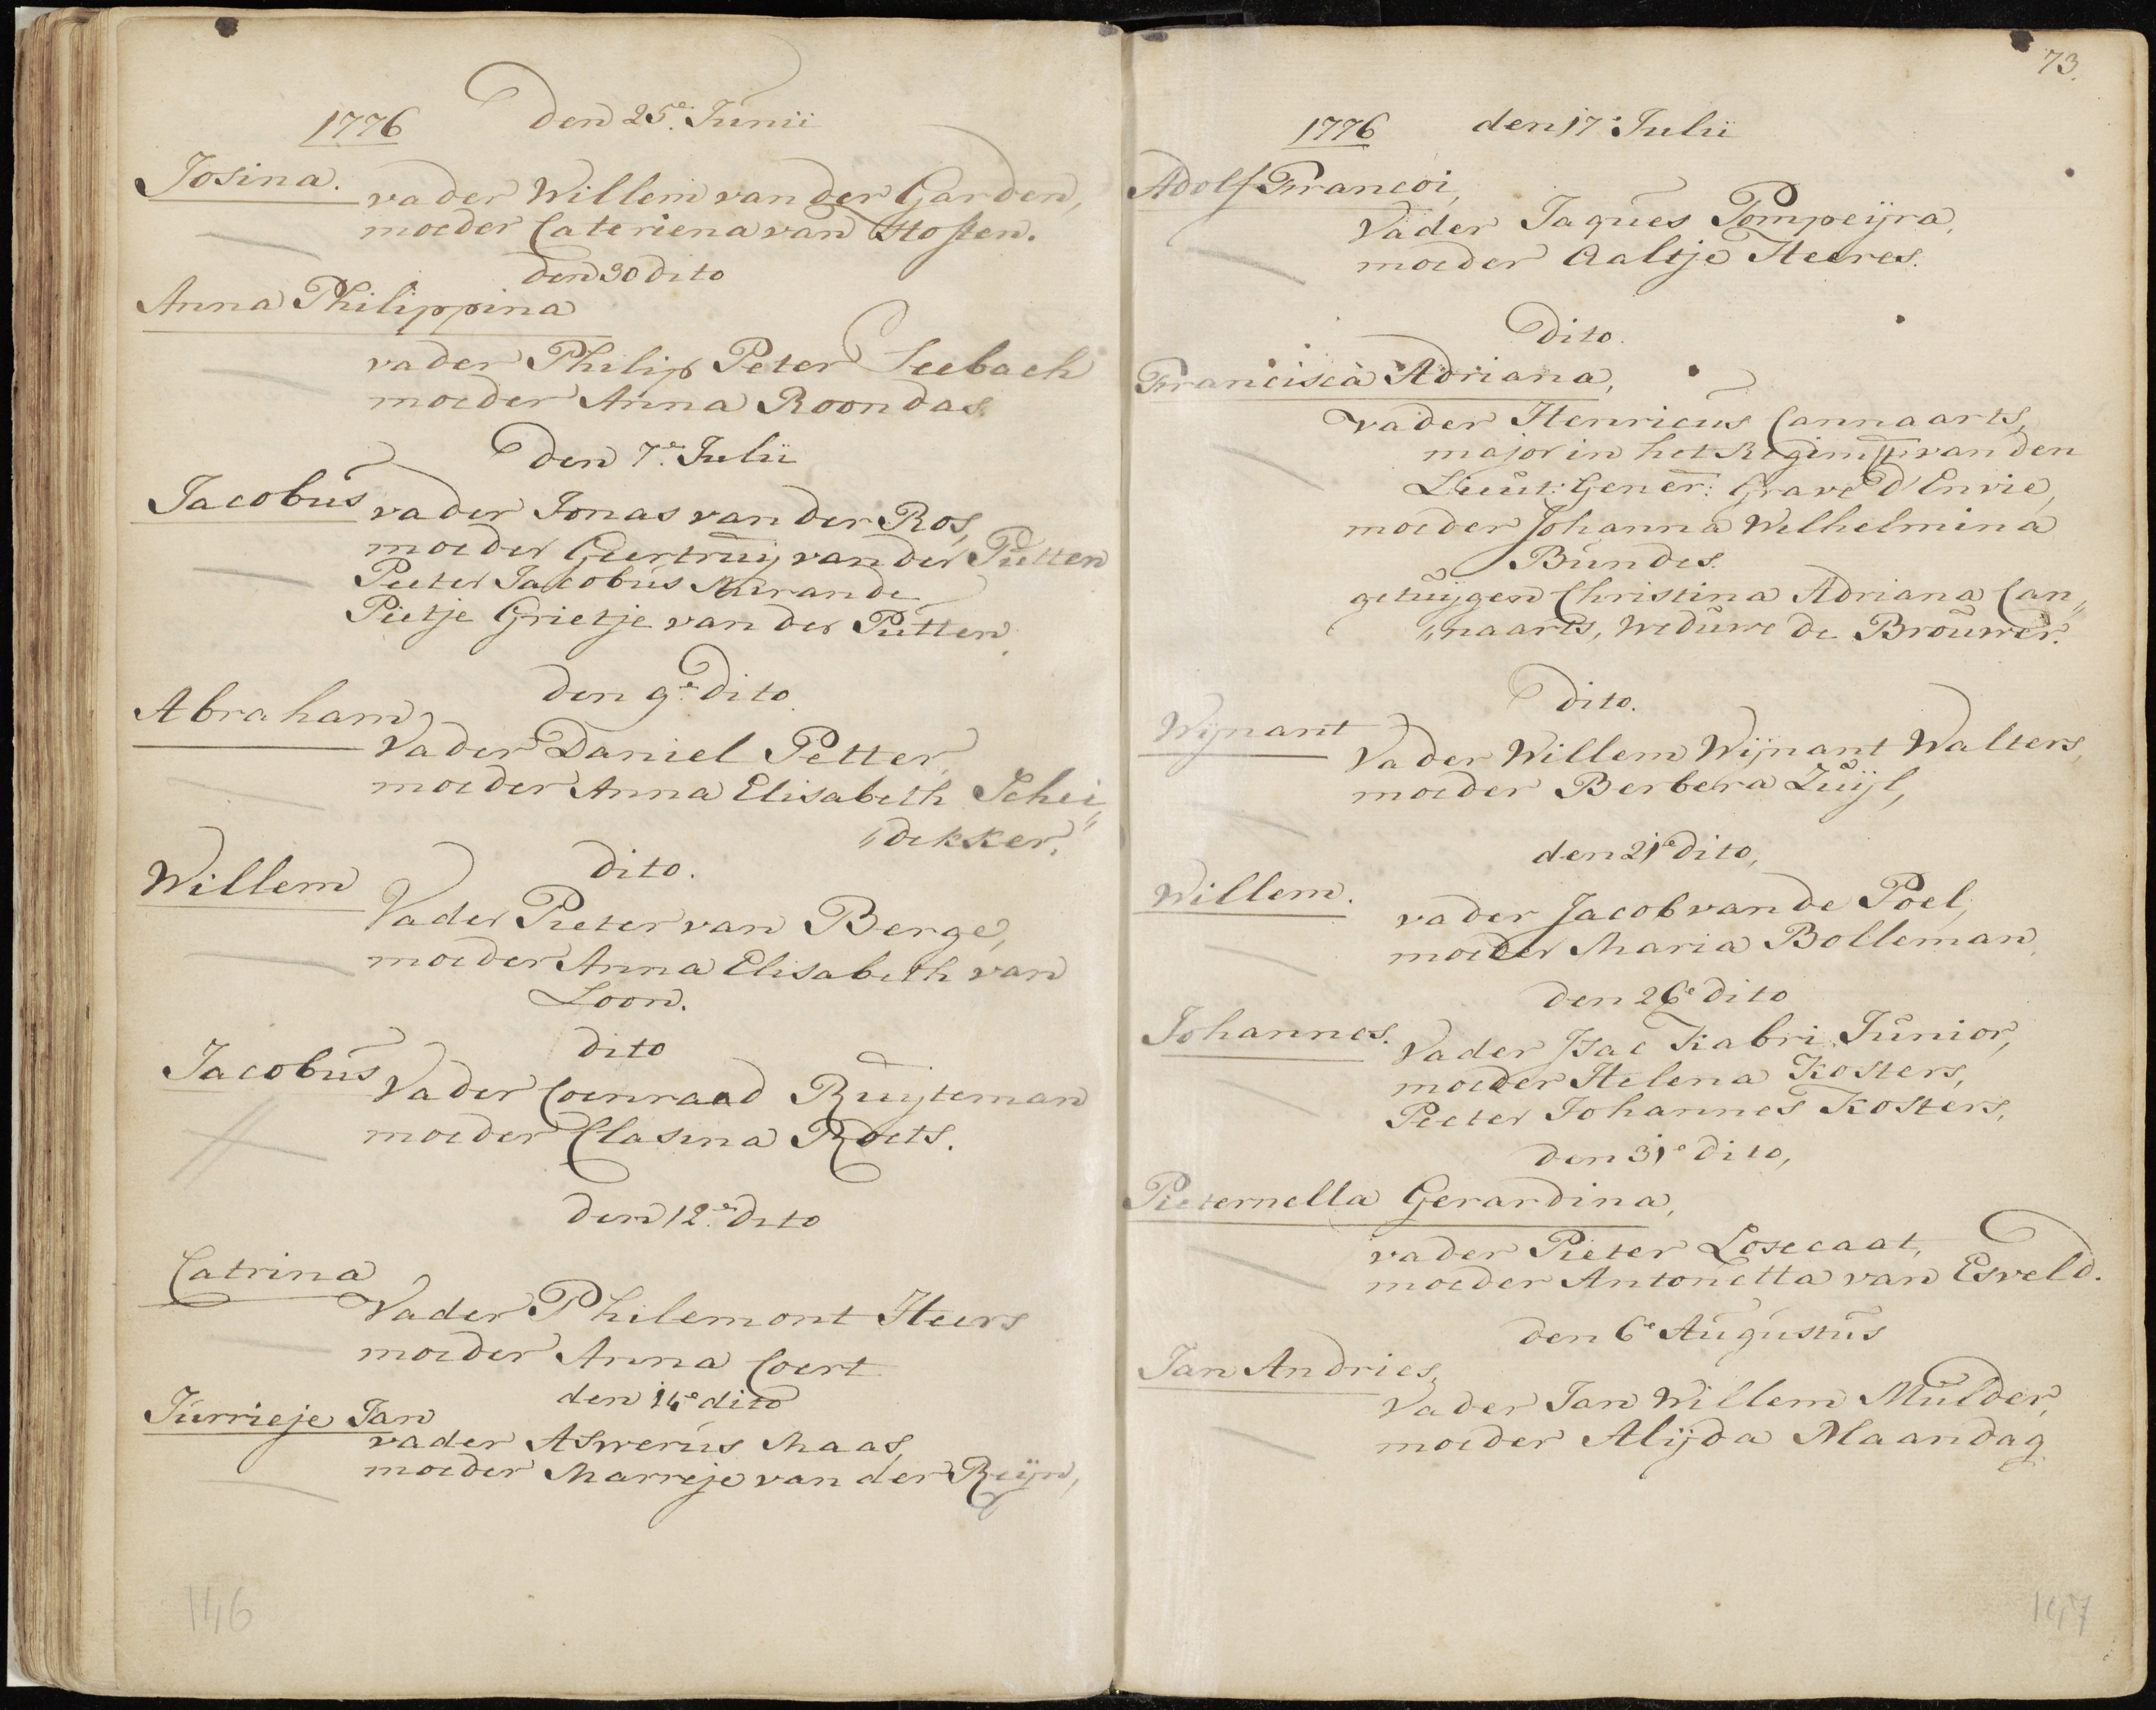 1776 Den 25e. Junii
Josina.
vader Willem van der Garden,
moeder Cateriena van Hosten.
den 30 dito
Anna Philippina
vader Philip Peter Seebach
moeder Anna Roondas.
Den 7e. Julii
Jacobus vader Jonas van der Ros,
moeder Geertruij van der Putten
Peeter Jacobus Mirande
Pietje Grietje van der Putten.
den 9e. dito.
Abraham
Vader Daniel Petter,
moeder Anna Elisabeth Schei„
„dekker.
dito.
Willem
Vader Pieter van Berge,
moeder Anna Elisabeth van
Loon.
dito
Jacobus Vader Coenraad Ruijteman
moeder Clasina Roets.
den 12e. dito
Catrina
Vader Philemont Heers
moeder Anna Coert
den 14e dito
Jurrieje Jan
vader Aswerus Maas,
moeder Marreje van der Reijn,
146
73.
1776 den 17e Julii
Adolf Francoi,
Vader Jaques Pompeijra,
moeder Aaltje Heeres.
Dito.
Francisca Adriana,
vader Henricus Cannaarts,
major in het Regimt. van den
Lieut: Gener: Grave d'Envie,
moeder Johanna Welhelmina
Bundes.
getuijgen Christina Adriana Can„
„naarts, weduwe de Brouwer.
Dito.
Wijnant
Vader Willem Wijnant Walters,
moeder Berbera Zuijl,
den 21e dito,
Willem.
vader Jacob van de Poel,
moeder Maria Bolleman,
den 26e dito
Johannes. Vader Isac Kabri Junior,
moeder Helena Kosters,
Peeter Johannes Kosters,
den 31e dito,
Pieternella Gerardina,
vader Pieter Losecaat,
moeder Antonetta van Esveld.
den 6e Augustus
Jan Andries,
Vader Jan Willem Mulder,
moeder Alijda Maandag
147